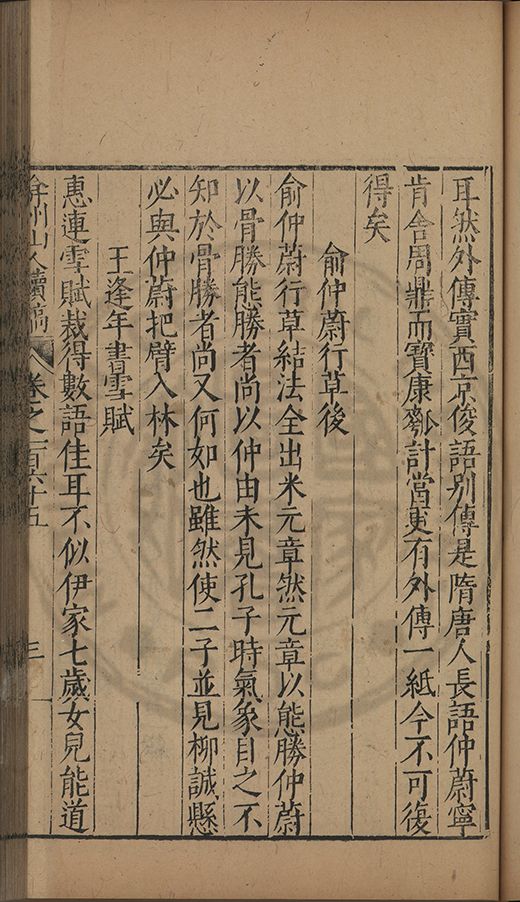 耳然外傳實西京俊語別傳是隋唐人長語仲蔚寧
肯舍周鼎而寶康瓠計當更有外傳一紙今不可復
得矣
俞仲蔚行草後
俞仲蔚行草結法全出米元章然元章以態勝仲蔚
以骨勝態勝者尚以仲由未見孔子時氣象目之不
知於骨勝者尚又何如也雖然使二子並見柳誠懸
必與仲蔚把臂入林矣
王逢年書雪賦
惠連雪賦裁得數語佳耳不似伊家七歲女兒能道
弇州山人續稿 卷之一百六十五 三